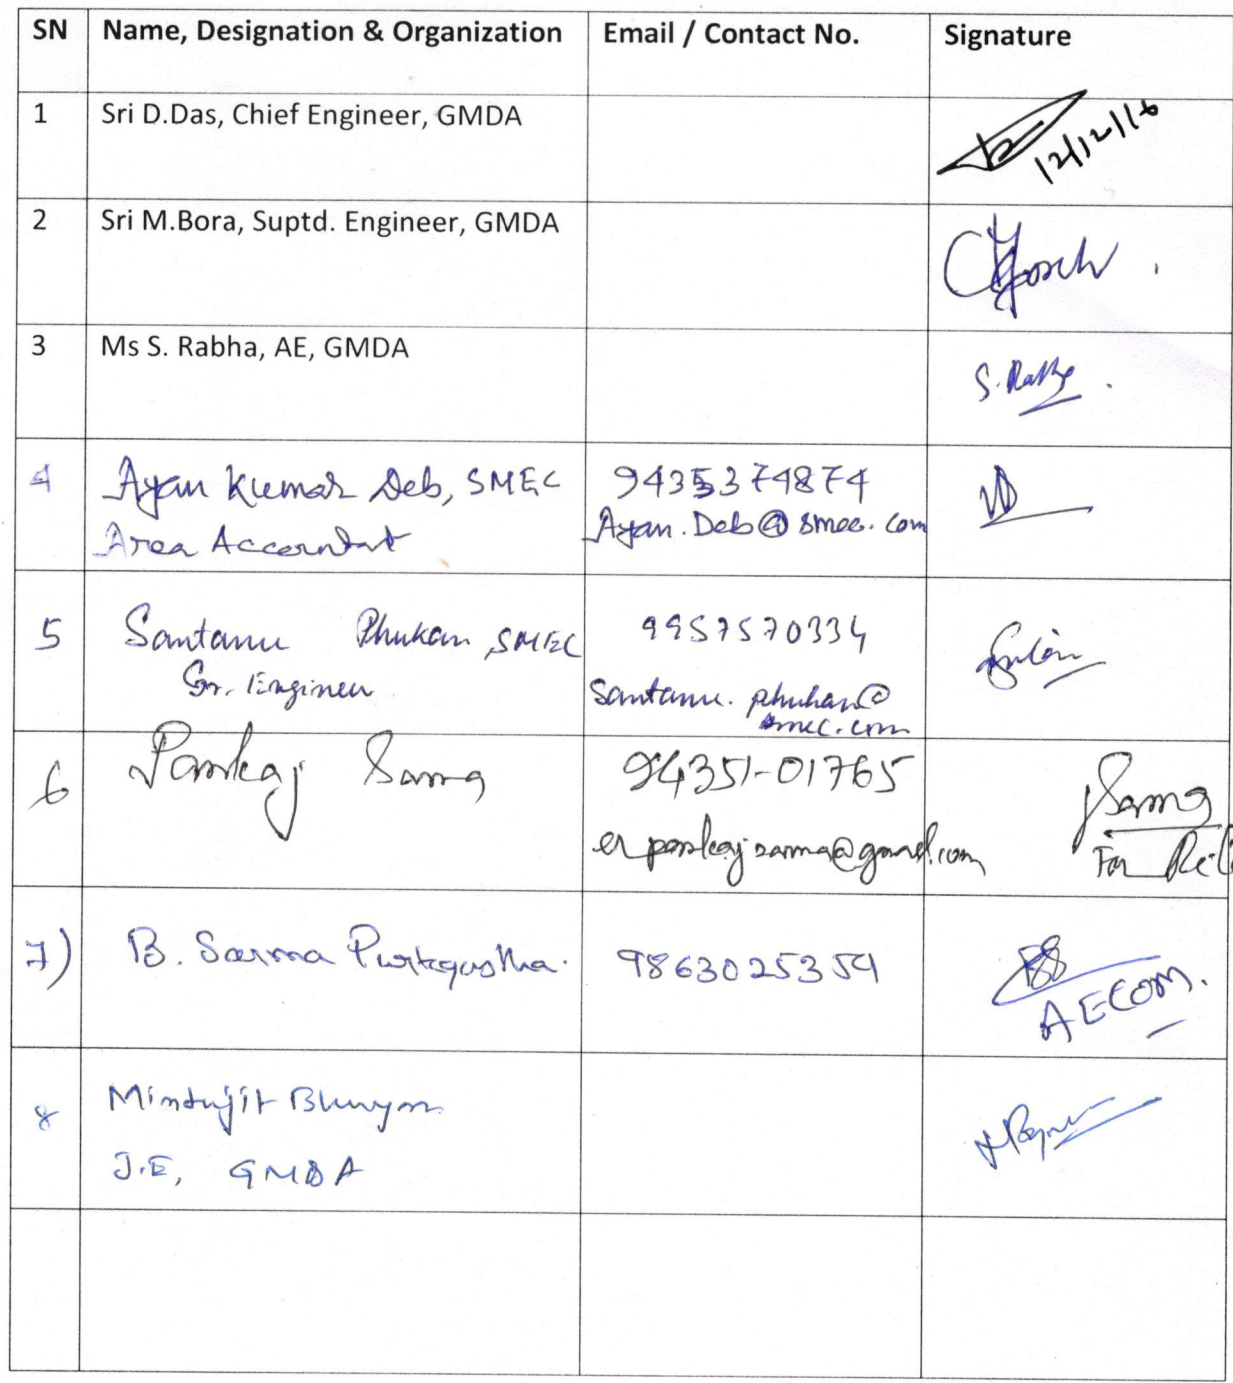 SN Name, Designation & Organization Email / Contact No. Signature
1 Sri D.Das, Chief Engineer, GMDA
12/12/16
2 Sri M.Bora, Suptd. Engineer, GMDA
3 Ms S. Rabha, AE, GMDA
S. Rabha
4 Ayan Kumar Deb, SMEC 9435374874
Area Accountant Ayan.Deb@smec.com
5 Santanu Phukan, SMEC 9957570334
Sr. Engineer santanu.phukan@
smec.com
6 Pankaj Sarma 94351-01765 Sarma
er pankajsarma@gmail.com For
7) B. Sarma Purkayastha. 9863025359
AECOM.
8 Mintujit Bhuyan
J.E, GMDA